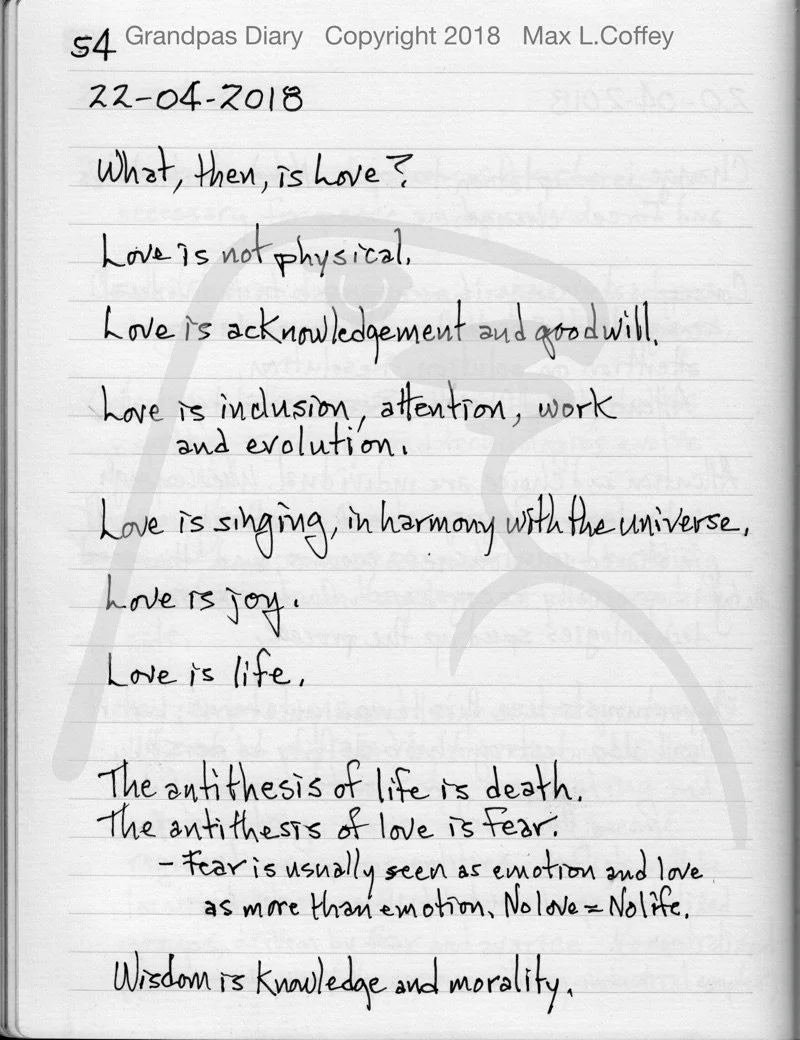 54 Grandpas Diary Copyright 2018 Max L.Coffey
22-04-2018
What, then, is Love?
Love is not physical.
Love is acknowledgement and goodwill.
Love is inclusion, attention, work
and evolution.
Love is singing, in harmony with the universe.
Love is joy.
Love is life.
The antithesis of life is death.
The antithesis of love is fear.
- Fear is usually seen as emotion and love
as more than emotion. No love = No life.
Wisdom is knowledge and morality.